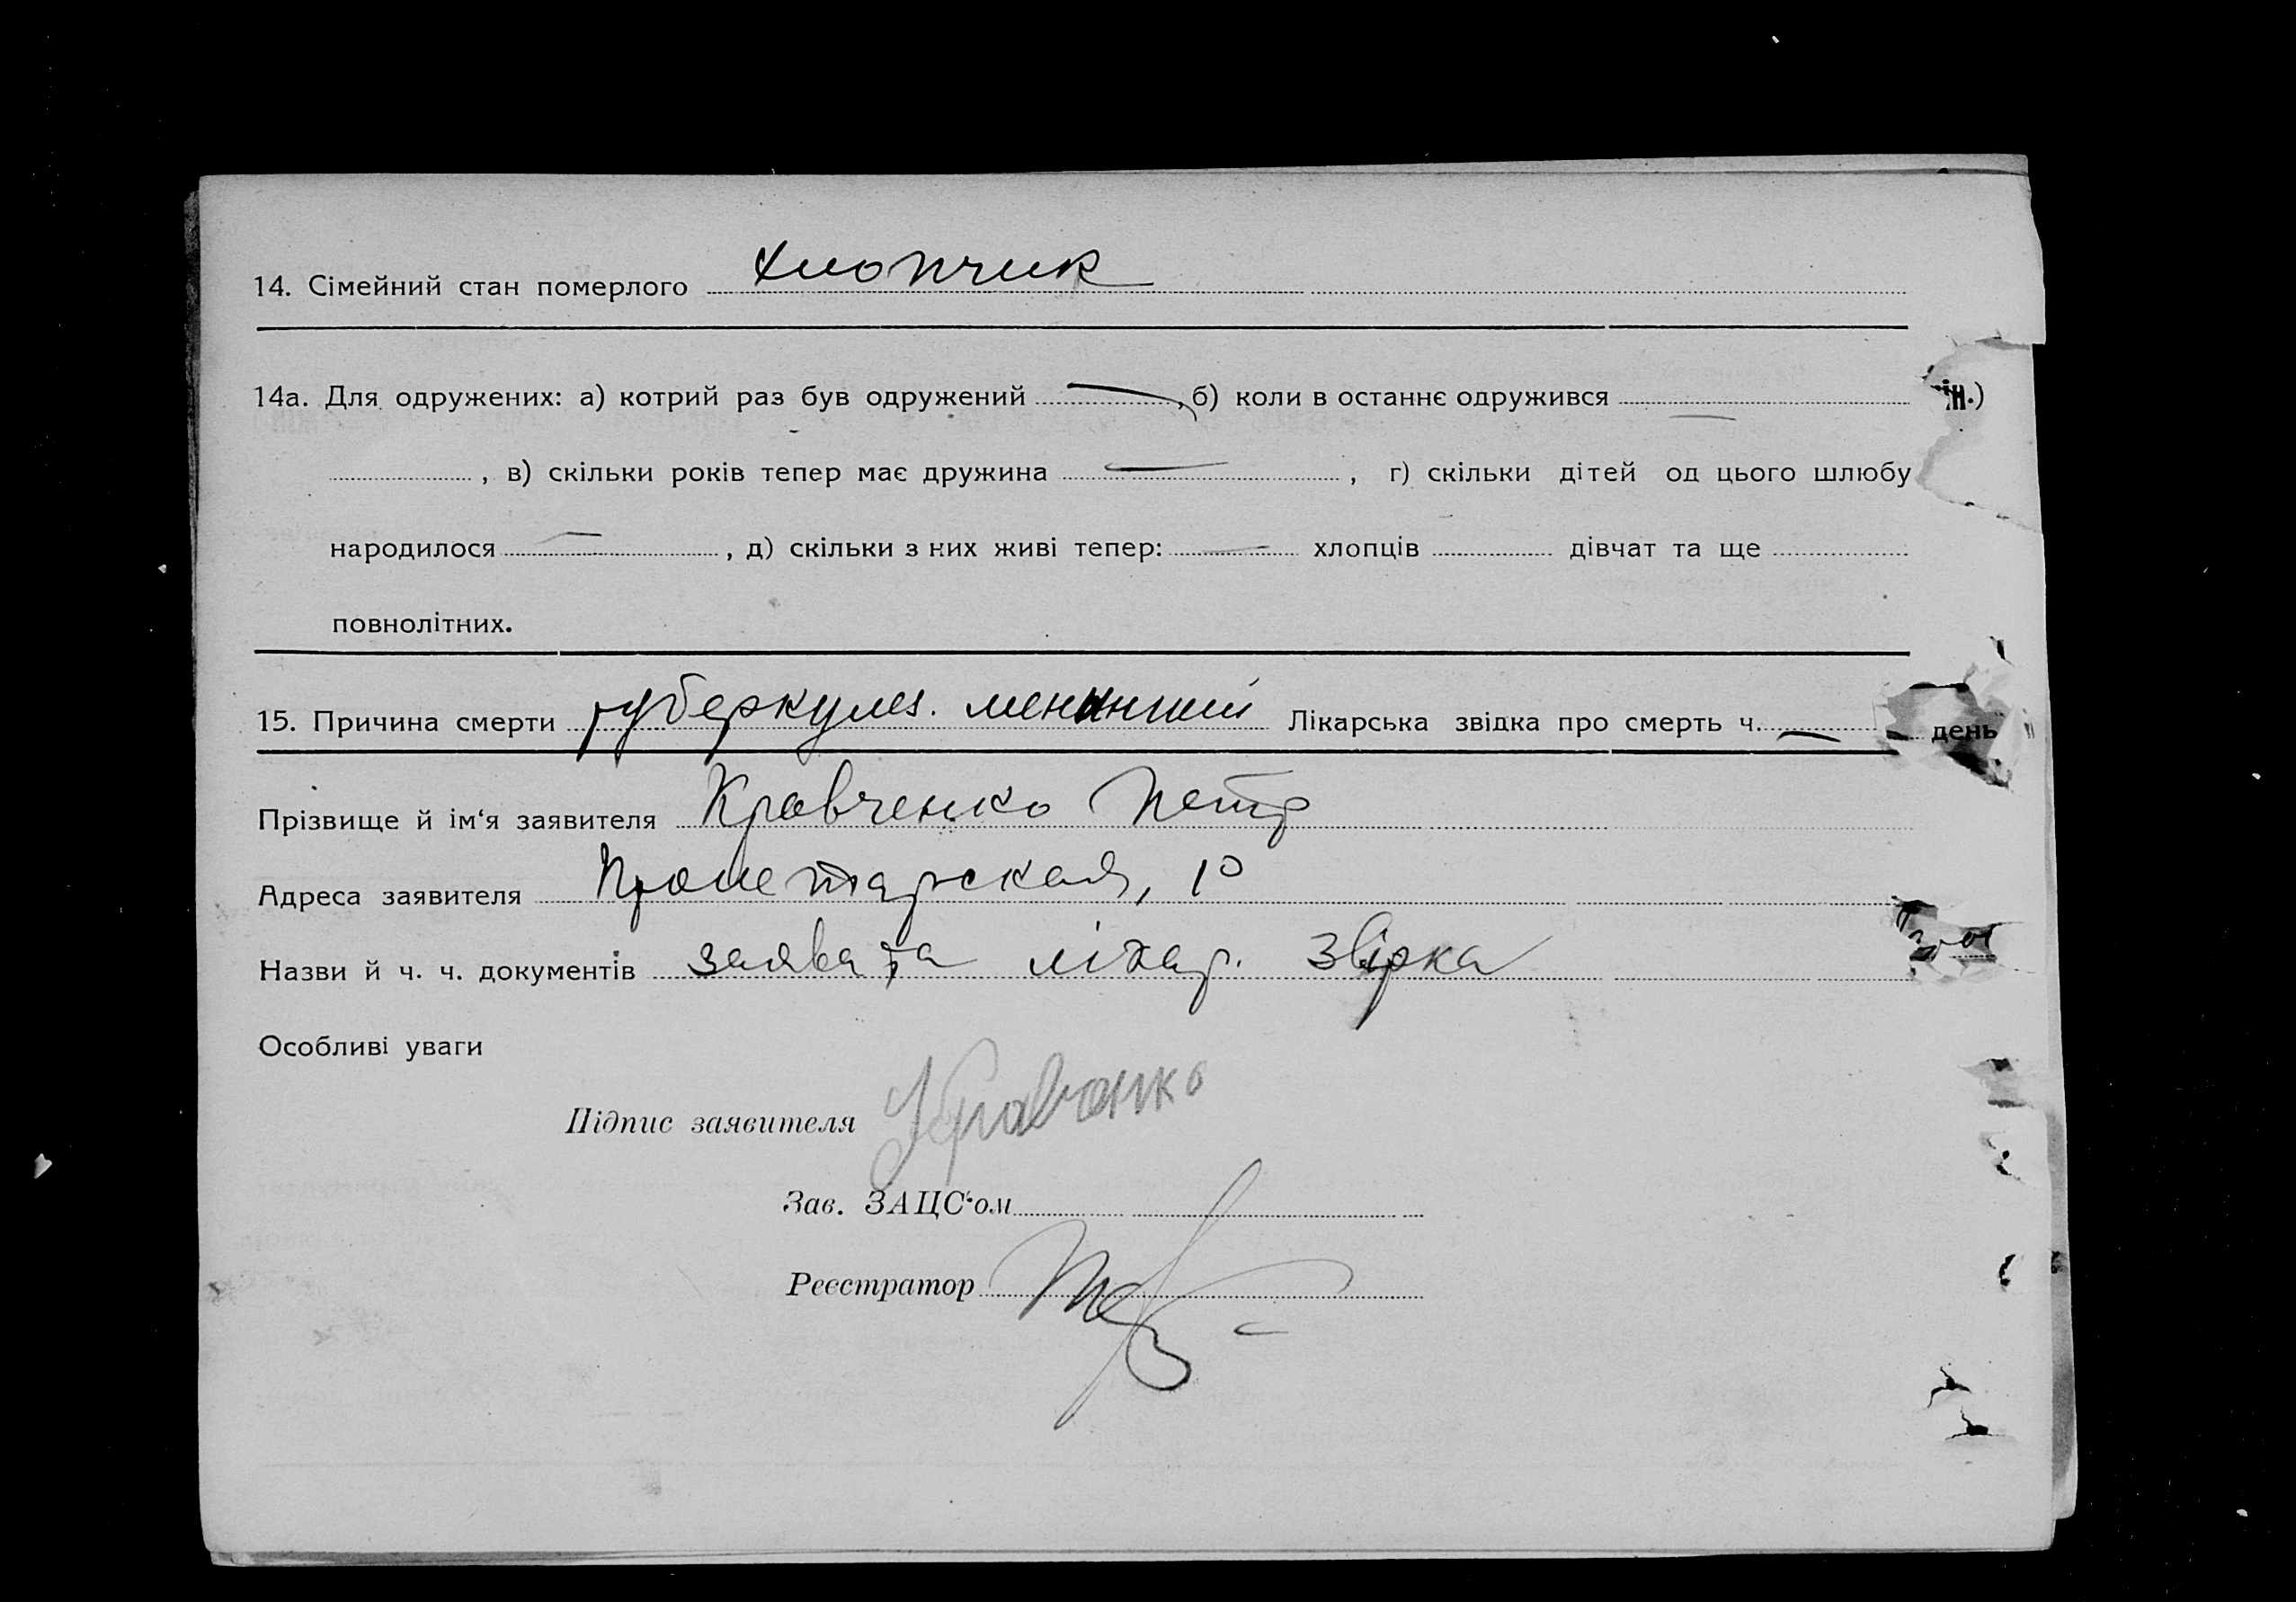 14. Сімейний стан померлого хлопчик
14а. Для одружених: а) котрий раз був одружений —, б) коли в останнє одружився —
, в) скільки років тепер має дружина —, г) скільки дітей од цього шлюбу
народилося —, д) скільки з них живі тепер: — хлопців дівчат та ще
повнолітних.
15. Причина смерти туберкульоз. Лікарська звідка про смерть ч. —
день
Прізвище й ім‘я заявителя Кравченко Петр
Адреса заявителя Пролетарская, 10
Назви й ч. ч. документів заява та лікар. звірка
Особливі уваги
Підпис заявителя Кравченко
Зав. ЗАЦС‘ом
Реєстратор